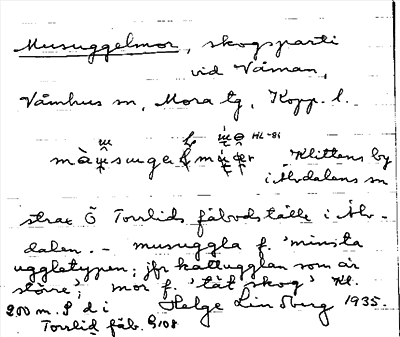 Musuggelmor, skogsparti
vid Våman,
Våmhus sn, Mora tg, Kopp. l.
HL-81
Klittens by
i Älvdalens sn
strax Ö Torrlids fäbodställe i Älv-
dalen. - musuggla f. 'minsta
uggletypen; jfr kattugglan som är
större'; mor f. 'tät skog' Kl.
200 m. S d i Helge Lindberg 1935.
Torrlid fäb.